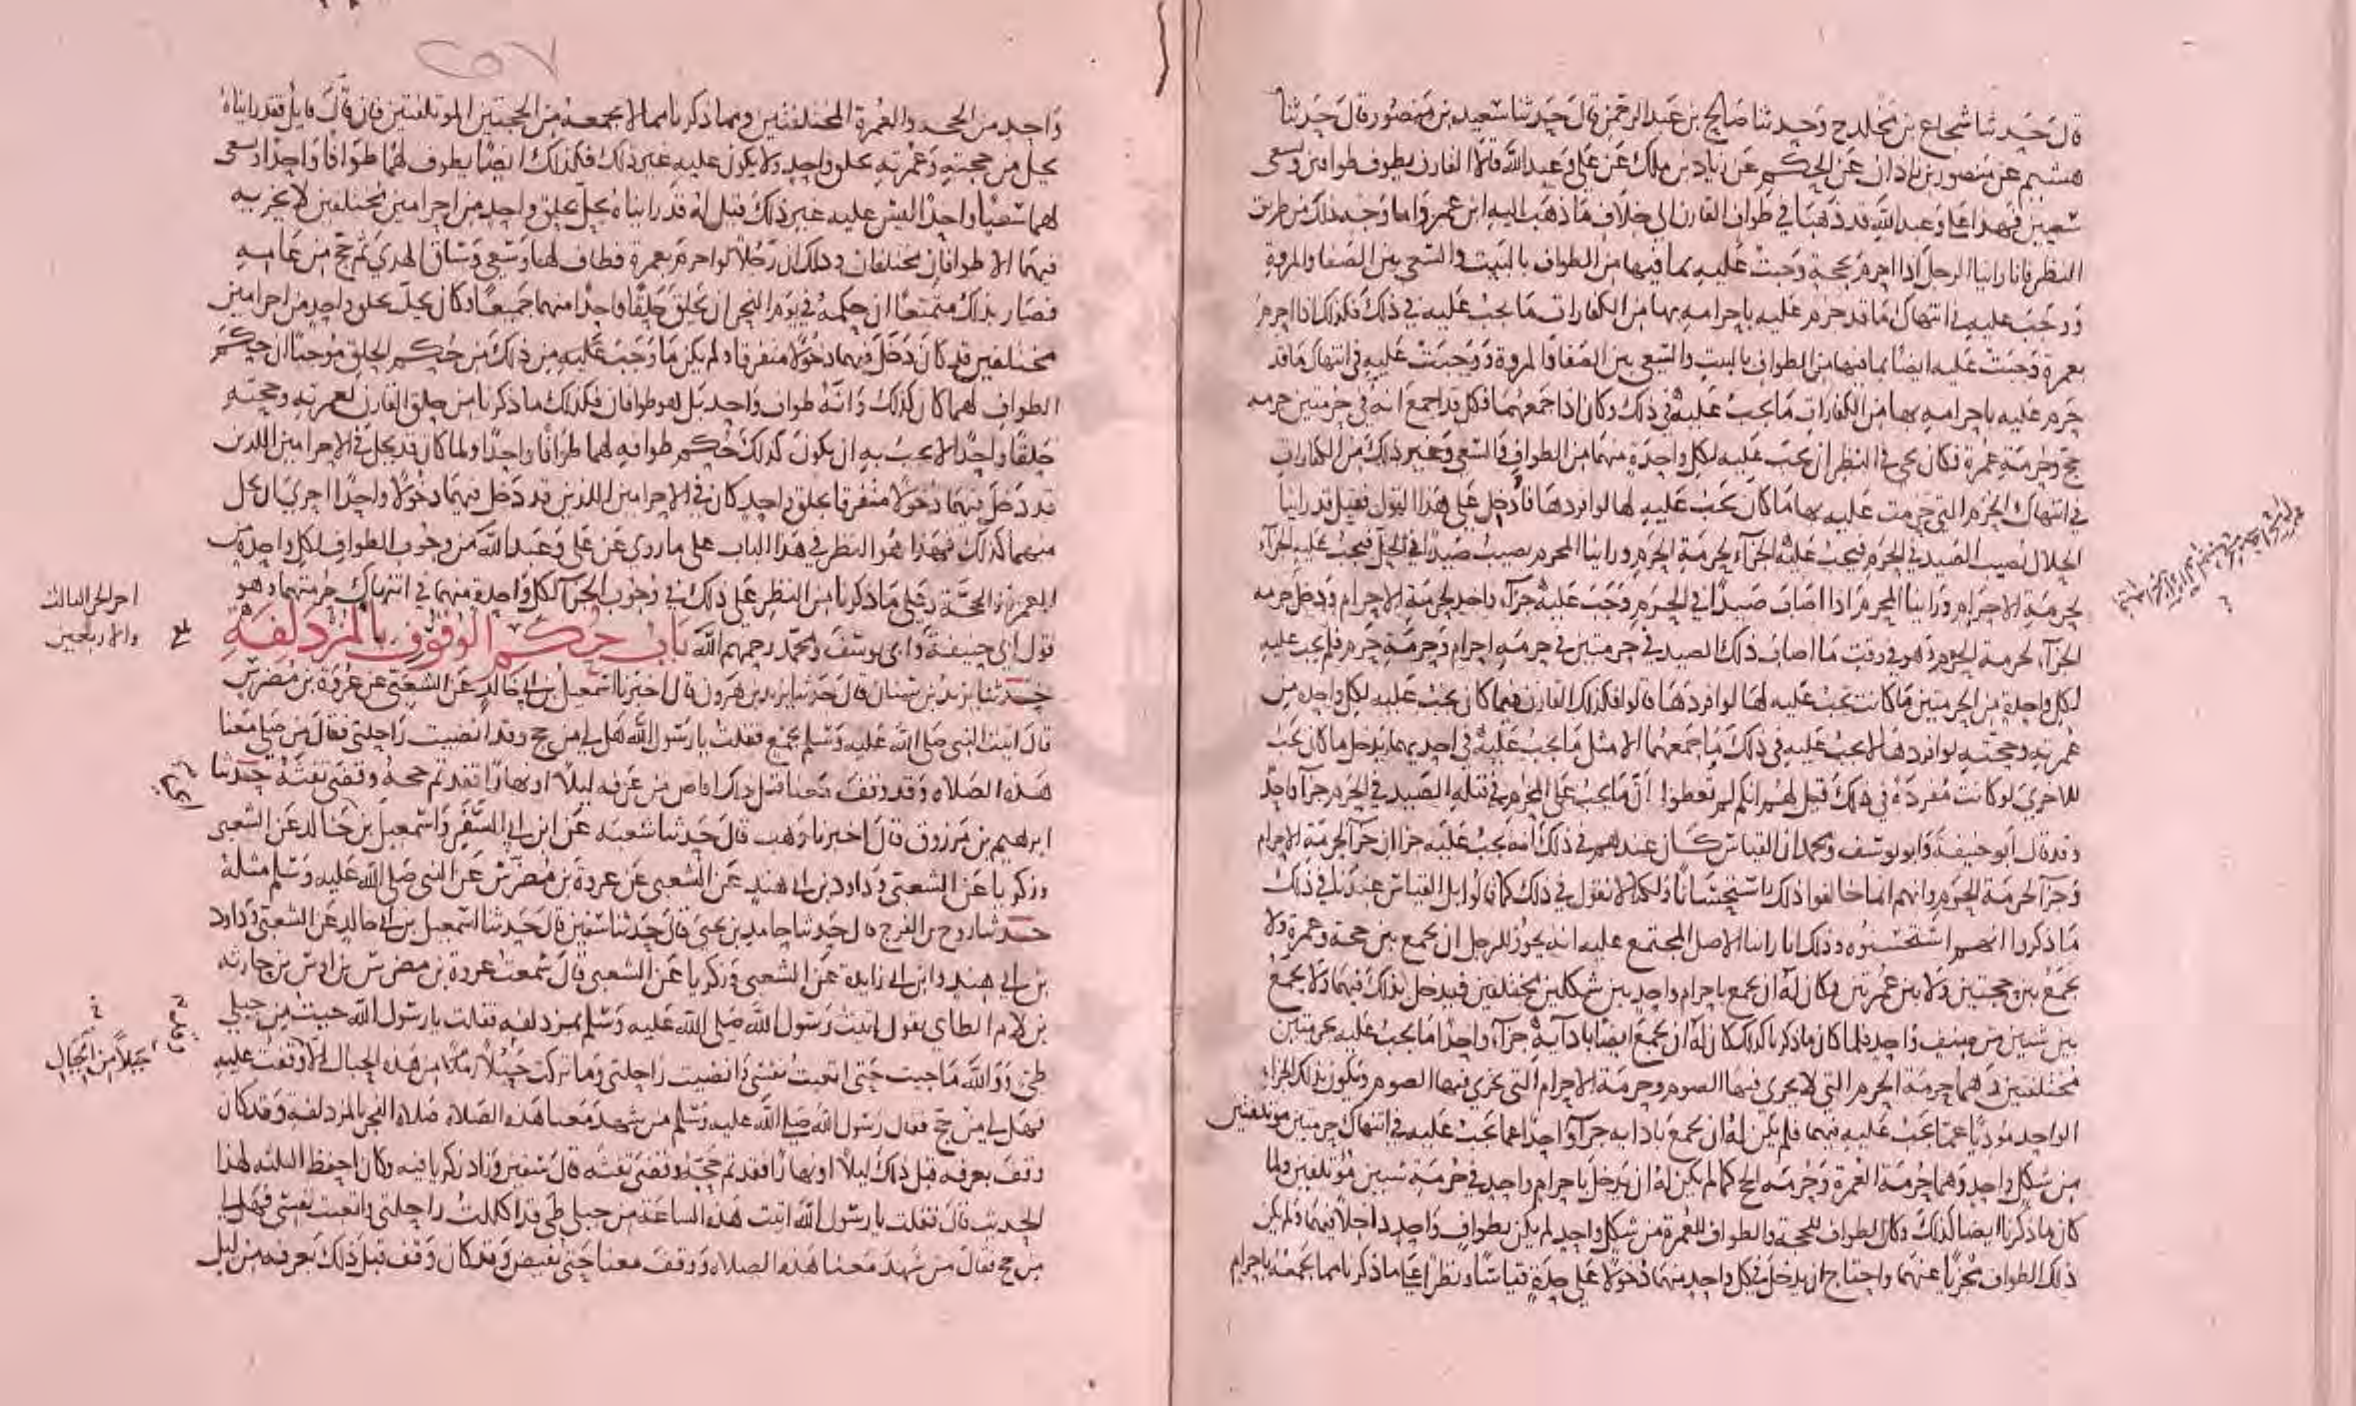 قال حدثنا شجاع بن مخلد ح وحدثنا صالح بن عبد الرحمن قال حدثنا سعيد بن منصور قال حدثنا
هشيم عن منصور بن زاذان عن الحكم عن زياد بن ملك عن علي وعبد الله قالا القارن يطوف طوافين ويسعى
سعيين فهذا علي وعبد الله قد ذهبا في طواف القارن الى خلاف ما ذهب اليه ابن عمر واما وجه ذلك من طريق
النظر فانا راينا الرجل اذا احرم بحجة وجبت عليه بما فيها من الطواف بالبيت والسعي بين الصفا والمروة
ووجب عليه في انتهاك ما قد حرم عليه باحرامه بها من الكفارات ما يجب عليه في ذلك فكذلك اذا احرم
بعمرة وجبت عليه ايضا بما فيها من الطواف بالبيت والسعي بين الصفا والمروة ووجبت عليه في انتهاك ما قد
حرم عليه باحرامه بها من الكفارات ما يجب عليه في ذلك وكان اذا جمعهما فكل قد اجمع انه في حرمتين حرمة
حج وحرمة عمرة فكان يجي في النظر ان يجب عليه لكل واحدة منهما من الطواف والسعي وغير ذلك من الكفارات
في انتهاك الحرم التي حرمت عليه بها ما كان يجب عليه لها لو افردها فادخل على هذا القول فقيل قد راينا
الحلال يصيب الصيد في الحرم فيجب عليه الجزاء لحرمة الحرم وراينا المحرم يصيب صيدا في الحل فيجب عليه الجزاء
لحرمة الاحرام وراينا المحرم اذا اصاب صيدا في الحرم وجب عليه جزاء واحد لحرمة الاحرام ودخل حرمة
الجزاء لحرمة الحرم وهو في وقت ما اصاب ذلك الصيد في حرمتين في حرمة احرام وحرمة حرم فلم يجب عليه
لكل واحدة من الحرمتين ما كانت يجب عليه لها لو افردها قالوا فكذلك القارن فيما كان يجب عليه لكل واحدة من
عمرته وحجته لو افردها لا يجب عليه في ذلك ما جمعهما الا مثل ما يجب عليه في احديهما يدخل ما كان يجب
للاخرى لو كانت مفردة في ذلك قيل لهم انكم لم تعطوا ان ما يجب على المحرم في قتله الصيد في الحرم جزاء واحد
وقد قال ابو حنيفة وابو يوسف ومحمد ان القياس كان عندهم في ذلك انه يجب عليه جزاان جزاء لحرمة الاحرام
وجزاء لحرمة الحرم وانهم انما خالفوا ذلك استحسانا ولكنا لا نقول في ذلك كما قالوا بل القياس عندنا في ذلك
ما ذكروا انهم استحسنوه وذلك انا راينا الاصل المجتمع عليه انه يجوز للرجل ان يجمع بين حجة وعمرة ولا
يجمع بين حجتين ولا بين عمرتين فكان له ان يجمع باحرام واحد بين شكلين مختلفين فيدخل بذلك فيهما ولا يجمع
بين شيئين من صنف واحد فلما كان ما ذكرنا كذلك كان له ان يجمع ايضا باداية جزاء واحدا ما يجب عليه بحرمتين
مختلفتين وهما حرمة الحرم التي لا يجزي فيها الصوم وحرمة الاحرام التي يجزي فيها الصوم ويكون بذلك الجزاء
الواحد موديا عما يجب عليه فيهما فلم يكن له ان يجمع باداية جزاء واحدا عما يجب عليه في انتهاك حرمتين موتلفتين
من شكل واحد وهما حرمة العمرة وحرمة الحج كما لم يكن له ان يدخل باحرام واحد في حرمة شيئين موتلفين ولما
كان ما ذكرنا ايضا كذلك وكان الطواف للحجة والطواف للعمرة من شكل واحد لم يكن بطواف واحد داخلا فيهما ولم يكن
ذلك الطواف مجزيا عنهما واحتاج ان يدخل في كل واحد منهما دخولا على حدة قياسا ونظرا على ما ذكرنا مما يجمعه باحرام
٢٥٧
واحد من الحجة والعمرة المختلفتين ومما ذكرنا مما لا يجمعه من الحجتين الموتلفتين فان قال قايل فقد رايناه
يحل من حجته وعمرته بحلق واحد ولا يكون عليه غير ذلك فكذلك ايضا يطوف لهما طوافا واحدا ويسعى
لهما سعيا واحدا ليس عليه غير ذلك قيل له قد رايناه يحل بحلق واحد من احرامين مختلفين لا يجزيه
فيهما الا طوافان مختلفان وذلك ان رجلا لو احرم بعمرة فطاف لها وسعى وساق الهدي ثم حج من عامه
فصار بذلك متمتعا ان حكمه في يوم النحر ان يحلق حلقا واحدا منهما جميعا وكان يحل بحلق واحد من احرامين
مختلفين قد كان دخل فيهما دخولا متفرقا ولم يكن ما وجب عليه من ذلك من حكم الحلق موجبا ان حكم
الطواف لهما كان كذلك وانه طواف واحد بل هو طوافان فكذلك ما ذكرنا من حلق القارن لعمرته وحجته
حلقا واحدا لا يجب به ان يكون كذلك حكم طوافه لهما طوافا واحدا ولما كان قد يحل في الاحرامين اللذين
قد دخل فيهما دخولا متفرقا بحلق واحد كان في الاحرامين اللذين قد دخل فيهما دخولا واحدا احرى ان يحل
منهما كذلك فهذا هو النظر في هذا الباب على ما روي عن علي وعبد الله من وجوب الطواف لكل واحدة من
العمرة والحجة وعلى ما ذكرنا من النظر على ذلك في وجوب الجزاء لكل واحدة منهما في انتهاك حرمتهما وهو
قول ابي حنيفة وابي يوسف ومحمد رحمهم الله باب حكم الوقوف بالمزدلفة
حدثنا يزيد بن سنان قال حدثنا يزيد بن هرون قال اخبرنا اسمعيل بن ابي خالد عن الشعبي عن عروة بن مضرس
قال اتيت النبي صلى الله عليه وسلم بجمع فقلت يا رسول الله هل لي من حج وقد انضيت راحلتي فقال من صلى معنا
هذه الصلاة وقد وقف معنا قبل ذلك افاض من عرفة ليلا او نهارا فقد تم حجه وقضى تفثه حدثنا
ابرهيم بن مرزوق قال اخبرنا وهب قال حدثنا شعبة عن ابن ابي السفر واسمعيل بن خالد عن الشعبي
وزكريا عن الشعبي وداود بن ابي هند عن الشعبي عن عروة بن مضرس عن النبي صلى الله عليه وسلم مثله
حدثنا روح بن الفرج قال حدثنا حامد بن يحيى قال حدثنا سفين قال حدثنا اسمعيل بن ابي خالد عن الشعبي وداود
بن ابي هند وابن ابي زايدة عن الشعبي وزكريا عن الشعبي قال سمعت عروة بن مضرس بن اوس بن حارثة
بن لام الطاي يقول اتيت رسول الله صلى الله عليه وسلم بمزدلفة فقلت يا رسول الله جيت من جبلي
طي ووالله ما جيت حتى اتعبت نفسي وانضيت راحلتي وما تركت جبلا من هذه الجبال الا وقفت عليه
فهل لي من حج فقال رسول الله صلى الله عليه وسلم من شهد معنا هذه الصلاة صلاة الفجر بالمزدلفة وقد كان
وقف بعرفة قبل ذلك ليلا او نهارا فقد تم حجه وقضى تفثه قال سفين وزاد زكريا فيه وكان احفظ الثلثة لهذا
الحديث قال فقلت يا رسول الله اتيت هذه الساعة من جبلي طي قد اكللت راحلتي واتعبت نفسي فهل لي
من حج فقال من شهد معنا هذه الصلاة ووقف معنا حتى نفيض وقد كان وقف قبل ذلك بعرفة من ليل
اخر الجز الثالث
والاربعين
جبلا من الجبال